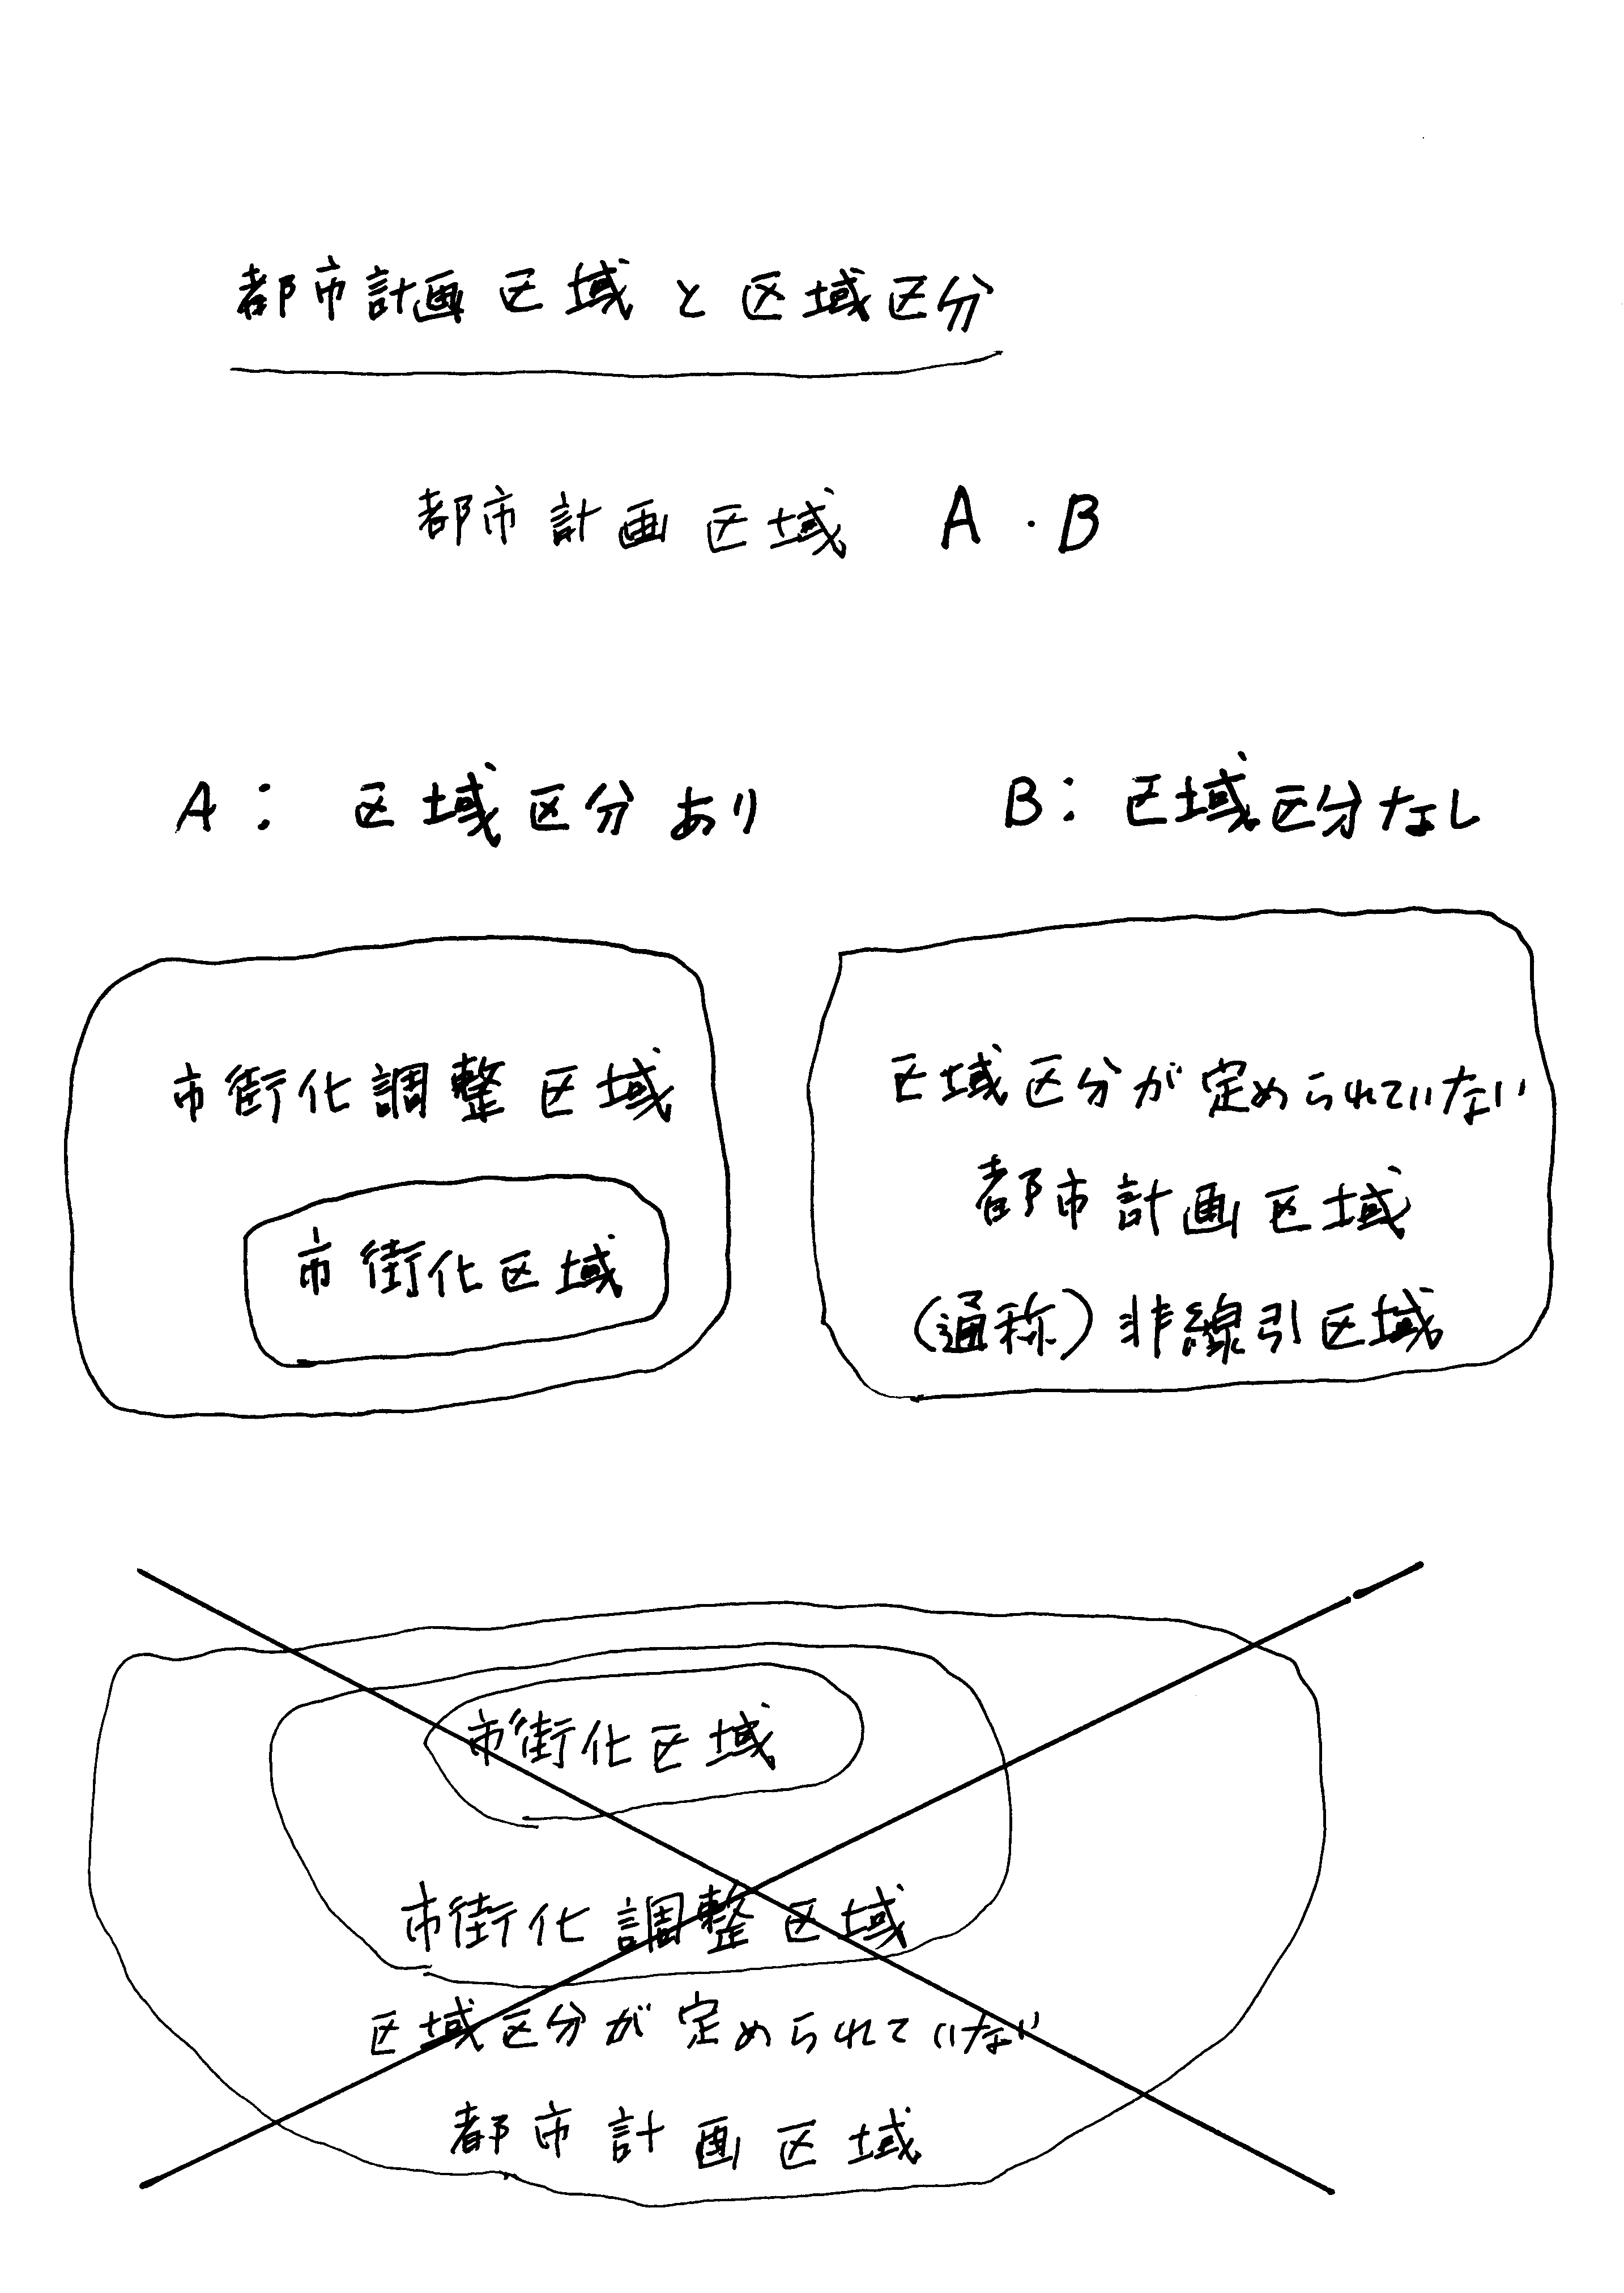 都市計画区域と区域区分
都市計画区域 A・B
A: 区域区分あり
市街化調整区域
市街化区域
B: 区域区分なし
区域区分が定められていない
都市計画区域
(通称)非線引区域
市街化区域
市街化調整区域
区域区分が定められていない
都市計画区域